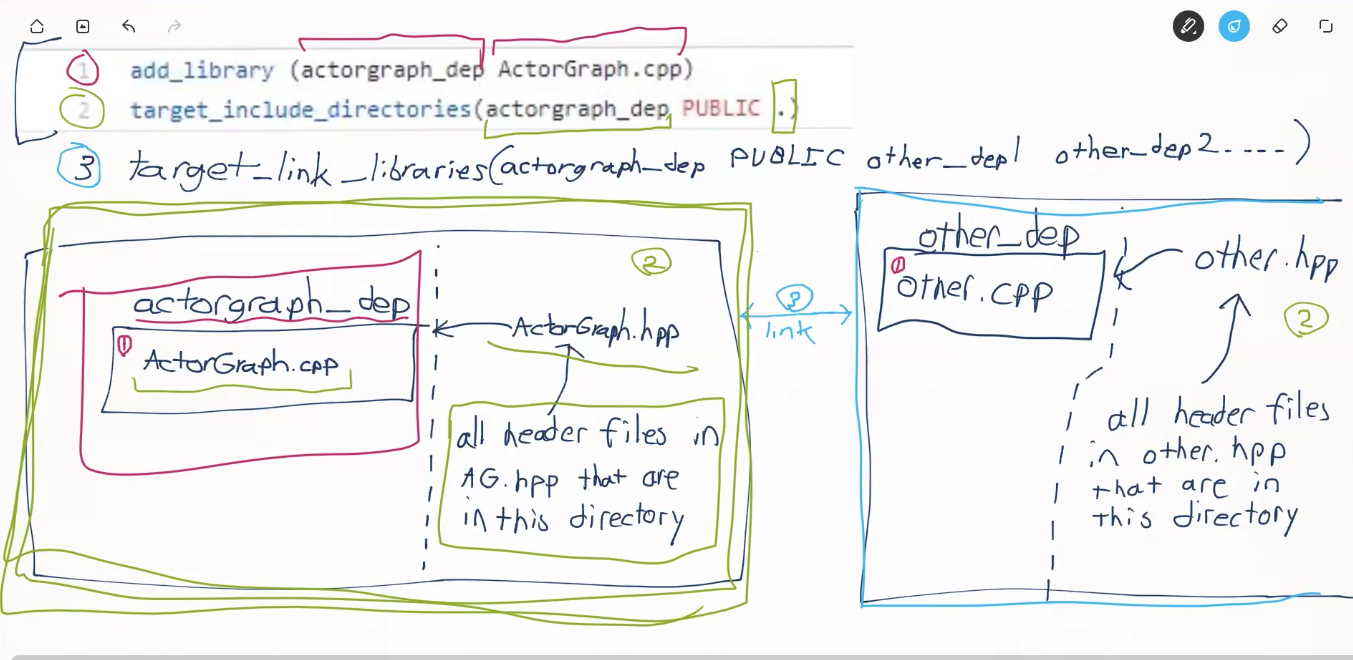 1 add_library (actorgraph_dep ActorGraph.cpp)
2 target_include_directories(actorgraph_dep PUBLIC .)
3 target_link_libraries(actorgraph_dep PUBLIC other_dep1 other_dep2----)
2
actorgraph_dep
1
ActorGraph.cpp
ActorGraph.hpp
all header files in
AG.hpp that are
in this directory
3
link
other_dep
1
other.cpp
other.hpp
2
all header files
in other.hpp
that are in
this directory